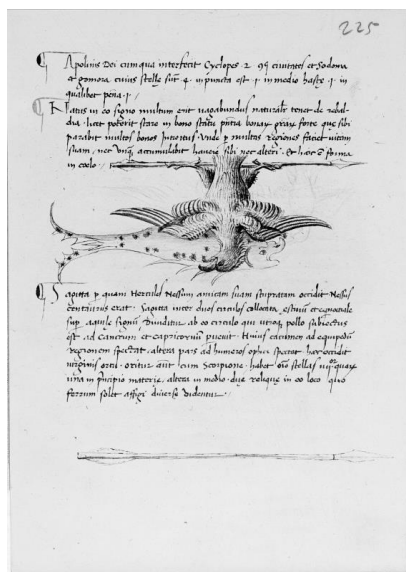 225
Apolinis Dei cum qua interfecit Cyclopes. 2. civitates et Sodoma
et gomora cuius stelle sunt 4. in puncta est .1. in medio haste .1. in
qualibet pena .1.
Natus in eo signo multum erit vagabundus tenet de
licet poterit stare in bono statu forte que sibi
parabit multos bonos Unde p multas regiones faciet vitam
suam, nec accumulabit havere sibi nec alteri. Et hec e forma
in coelo.
Sagitta p quam Hercules Nessum amicam suam stupratam occidit Nessus
centaurus erat. Sagitta inter duos circulos collocata, estivum et equinoctiale
sup. aquile signum Dividitur ab eo circulo qui utroq, pollo subiectus
est ad Cancrum et capricornum puenit. Huius cacumen ad equipedum
regionem spectat, altera pars ad humeros spectat hec occidit
virginis ortu. oritur aut cum Scorpione. habet stellas quar
una in pricipio materie, altera in medio. due relique in eo loco quo
ferrum solet affigi diverse videntur.